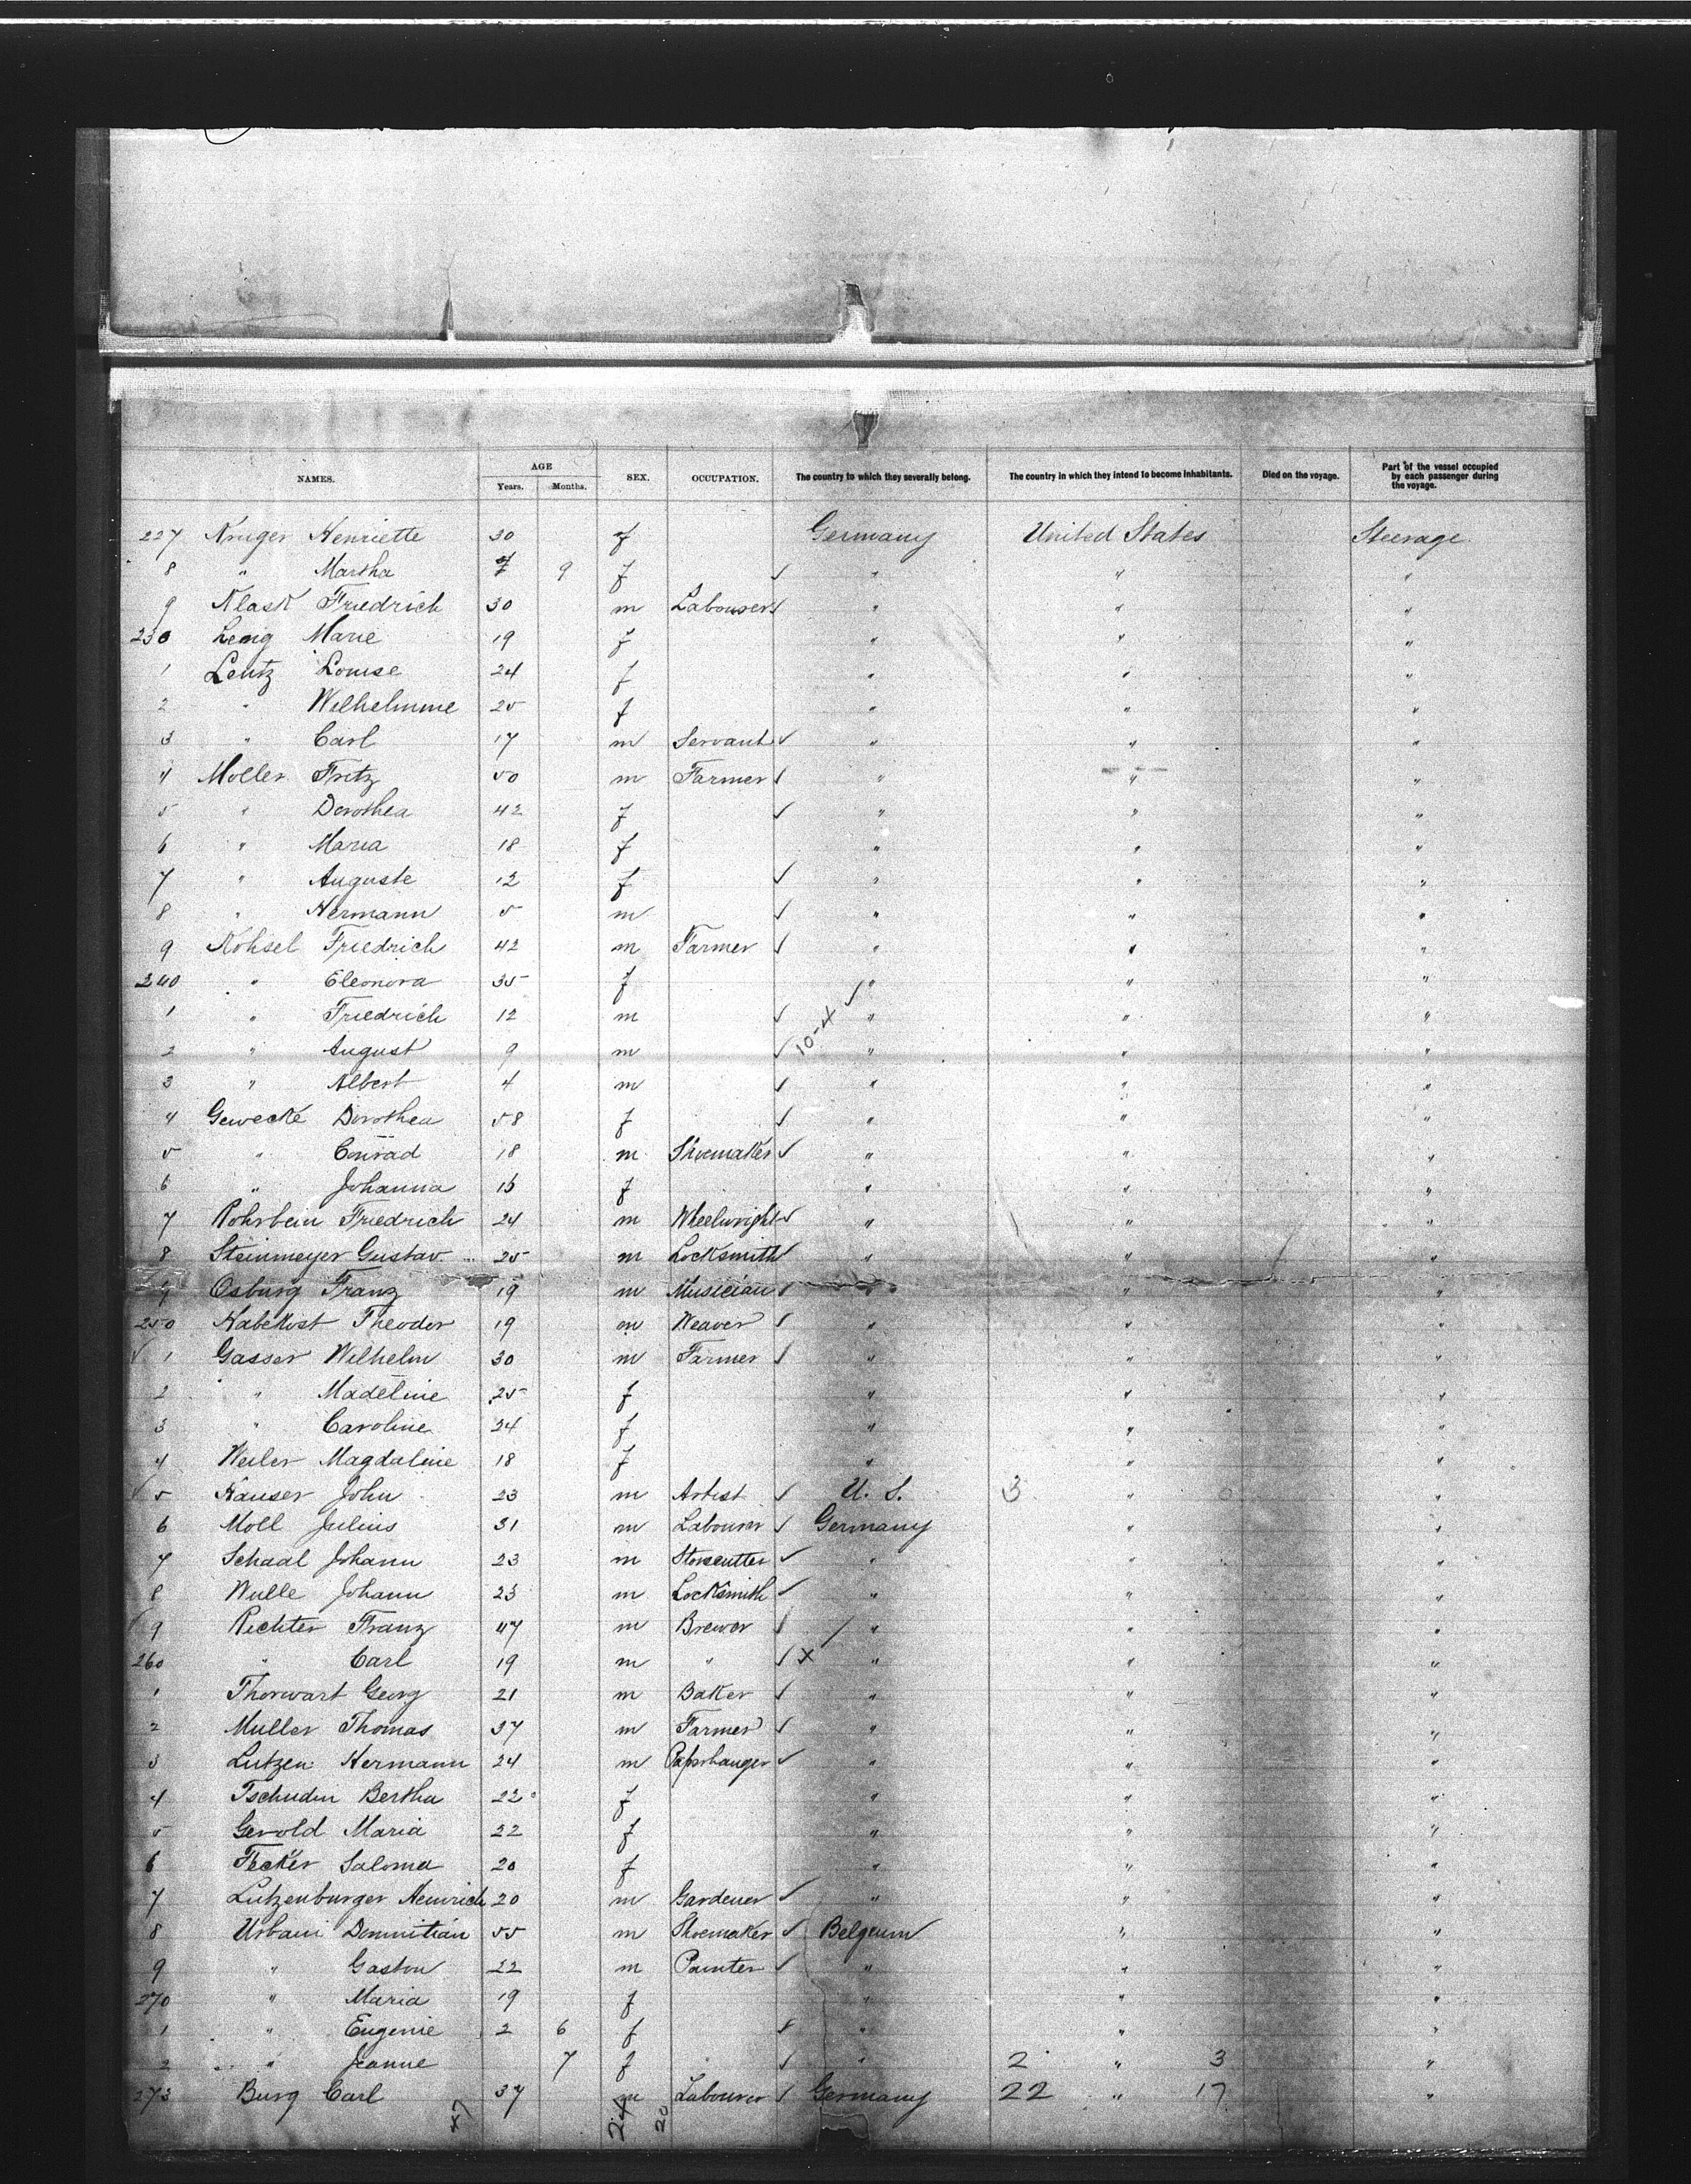 NAMES. AGE Years. Months. SEX. OCCUPATION. The country to which they severally belong. The country in which they intend to become inhabitants. Died on the voyage. Part of the vessel occupied by each passenger during the voyage.
227 Kruger Henriette 30 f Germany United States Steerage
8 " Martha 9 f ✓ " " "
9 Klask Friedrich 30 m Labourer ✓ " " "
230 Marie 19 f " " "
1 Lentz Louise 24 f " " "
2 " Wilhelmine 25 f " " "
3 " Carl 17 m Servant ✓ " " "
4 Moller Fritz 50 m Farmer ✓ " " "
5 " Dorothea 42 f ✓ " " "
6 " Maria 18 f " " "
7 " Auguste 12 f ✓ " " "
8 " Hermann 5 m ✓ " " "
9 Kohsel Friedrich 42 m Farmer ✓ " " "
240 " Eleonora 35 f " " "
1 " Friedrich 12 m ✓ " " "
2 " August 9 m ✓ 10-4 ✓ " " "
3 " Albert 4 m ✓ " " "
4 Gewecke Dorothea 58 f ✓ " " "
5 " Conrad 18 m Shoemaker ✓ " " "
6 " Johanna 16 f " " "
7 Rohrbein Friedrich 24 m Wheelwright ✓ " " "
8 Steinmeyer Gustav 25 m Locksmith ✓ " " "
9 Osburg Franz 19 m Musician ✓ " " "
250 Habekost Theodor 19 m Weaver ✓ " " "
✓ 1 Gasser Wilhelm 30 m Farmer ✓ " " "
2 " Madeline 25 f " " "
3 " Caroline 24 f " " "
4 Weiler Magdaline 18 f " " "
✓ 5 Hauser John 23 m Artist ✓ U. S. 3 " 0 "
6 Moll Julius 31 m Labourer ✓ Germany " "
7 Schaal Johann 23 m Stonecutter ✓ " " "
8 Wulle Johann 23 m Locksmith ✓ " " "
✓ 9 Richter Franz 47 m Brewer ✓ / " " "
260 " Carl 19 m " ✓ x " " "
1 Thorwart Georg 21 m Baker ✓ " " "
2 Muller Thomas 37 m Farmer ✓ " " "
3 Lutzen Hermann 24 m Paprhanger ✓ " " "
4 Tschudin Bertha 22 f " " "
5 Gerold Maria 22 f " " "
6 Fecker Saloma 20 f " " "
7 Lutzenburger Heinrich 20 m Gardener ✓ " " "
8 Urbani Dommitian 55 m Shoemaker ✓ Belgium " "
9 " Gaston 22 m Painter ✓ " " "
270 " Maria 19 f " " "
1 " Eugenie 2 6 f ✓ " " "
2 " Jeanne 7 f ✓ " 2 " 3 "
273 Burg Carl 37 m Labourer ✓ Germany 22 " 17 "
47 24 20